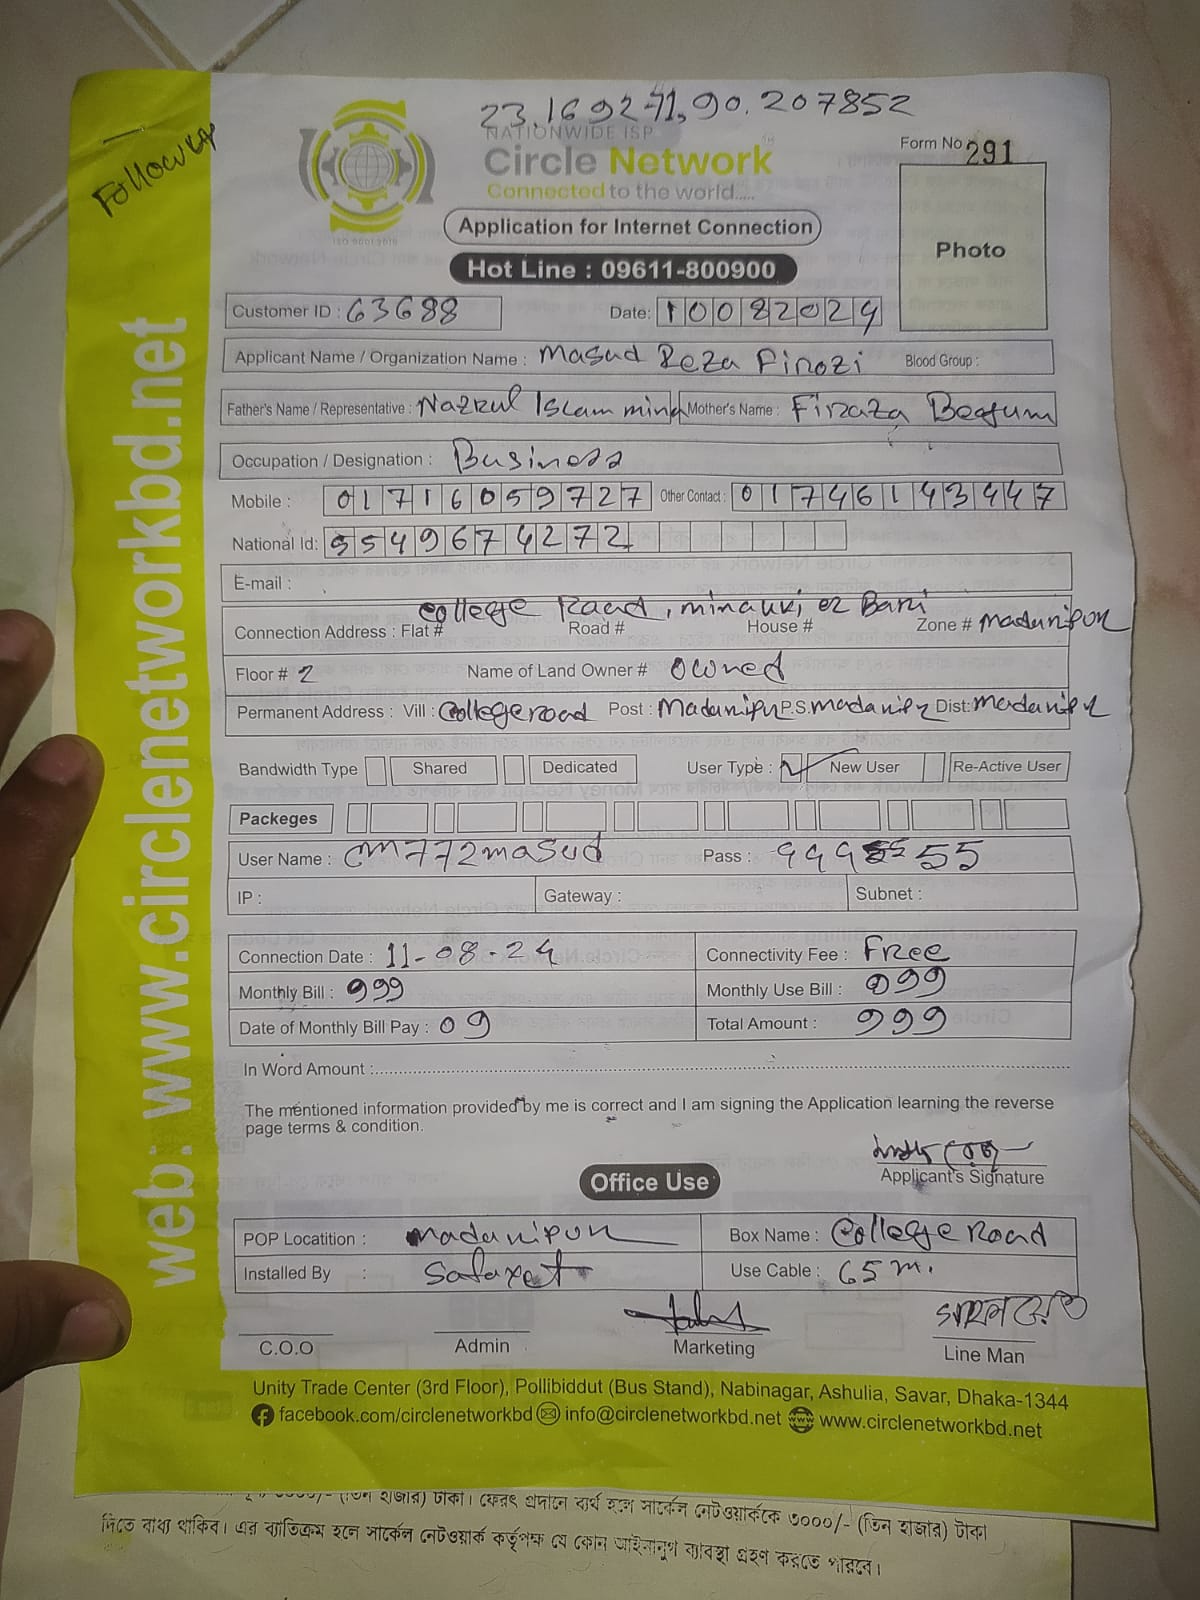 23.169271,90.207852
Follow up
NATIONWIDE ISP
Circle Network
Connected to the world.....
ISO 9001:2015
Form No 291
Photo
Application for Internet Connection
Hot Line : 09611-800900
Customer ID : 63688 Date: 10082024
Applicant Name / Organization Name : Masud Reza Firozi Blood Group :
Father's Name / Representative : Nazrul Islam mina Mother's Name : Firaza Beagum
Occupation / Designation : Business
Mobile : 01716059727 Other Contact : 01746143447
National Id: 5549674272
E-mail :
College Road, minauki er Bari
Connection Address : Flat # Road # House # Zone # Madaripur
Floor # 2 Name of Land Owner # owned
Permanent Address : Vill : College road Post : Madaripur P.S. madaripur Dist: madaripur
Bandwidth Type Shared Dedicated User Type : New User Re-Active User
Packeges
User Name : cm772masud Pass : 55
IP : Gateway : Subnet :
Connection Date : 11-08-24 Connectivity Fee : Free
Monthly Bill : 999 Monthly Use Bill : 999
Date of Monthly Bill Pay : 09 Total Amount : 999
In Word Amount :
The mentioned information provided by me is correct and I am signing the Application learning the reverse
page terms & condition.
Applicant's Signature
Office Use
POP Locatition : Madaripur Box Name : College Road
Installed By : Safayet Use Cable : 65 m.
C.O.O Admin Marketing Line Man
Unity Trade Center (3rd Floor), Pollibiddut (Bus Stand), Nabinagar, Ashulia, Savar, Dhaka-1344
facebook.com/circlenetworkbd info@circlenetworkbd.net www.circlenetworkbd.net
web: www.circlenetworkbd.net
৩০০০/- (তিন হাজার) টাকা। ফেরৎ প্রদানে ব্যর্থ হলে সার্কেল নেটওয়ার্ককে ৩০০০/- (তিন হাজার) টাকা
দিতে বাধ্য থাকিব। এর ব্যতিক্রম হলে সার্কেল নেটওয়ার্ক কর্তৃপক্ষ যে কোন আইনানুগ ব্যবস্থা গ্রহণ করতে পারবে।